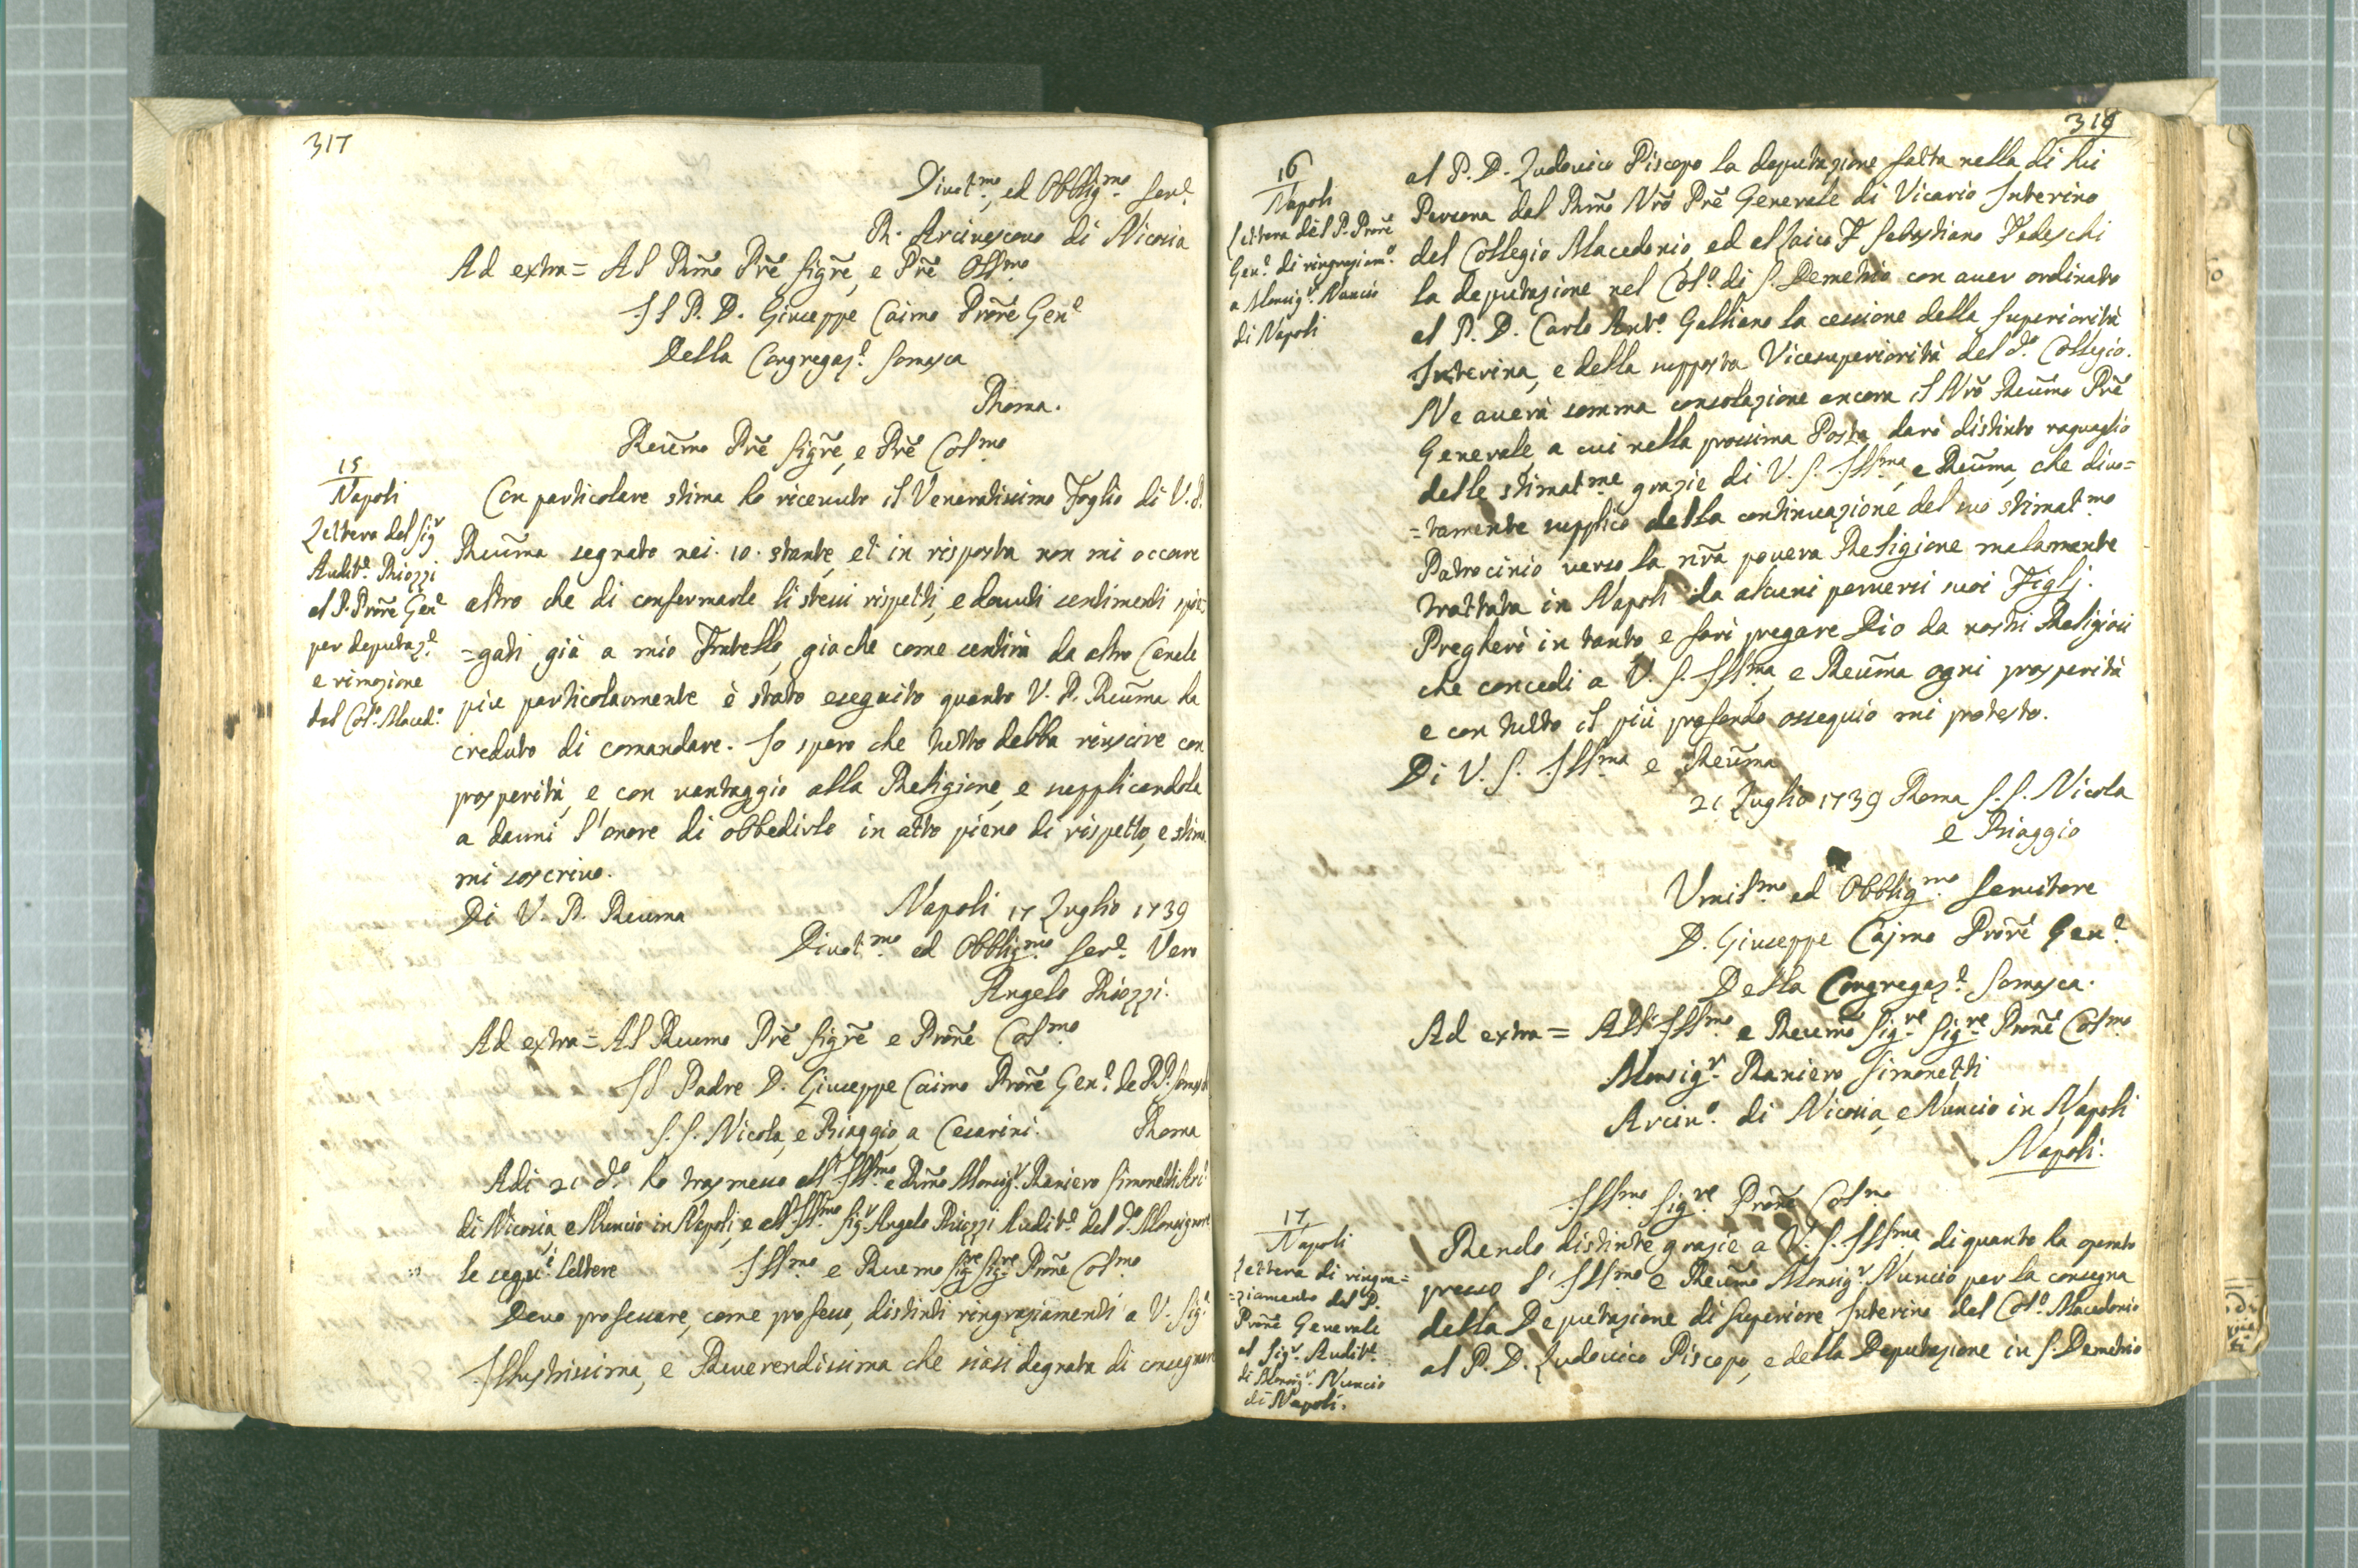 317
Divot.mo, ed Obblig.mo Ser.e
R. Arcivescovo di Nicosia
Ad extra = Al Rm̃o Prẽ Sigrẽ, e Prẽ Oss.mo
Il P. D. Giuseppe Caimo Prorẽ Gen.e
Della Congregaz.e Somasca
Roma.
Reũmo Prẽ Sigrẽ, e Prẽ Col.mo
15
Napoli
Lettera del Sig.r
Audit.e Riozzi
al P. Prorẽ Gen.e
per deputaz.e
e rimozione
del Col.o Maced.o
Con particolare stima ho ricevuto il Veneratissimo Foglio di V. P.
Reuma segnato nei. 10. stante, et in risposta non mi occorre
altro che di confermarle li stessi rispetti, e dovuti sentimenti spie=
=gati già a mio Fratello, giache come sentirà da altro Canale
più particolarmente è stato eseguito quanto V. P. Reuma ha
creduto di comandare. Io spero che tutto debba riuscire con
prosperità, e con vantaggio alla Religione, e supplicandola
a darmi l'onore di obbedirla in atto pieno di rispetto, e stima
mi soscrivo.
Di V. P. Reuma Napoli 17 Luglio 1739
Divot.mo ed Obblig.mo Ser.e Vero
Angelo Riozzi.
Ad extra = Al Reumo Prẽ Sigrẽ e Pronẽ Col.mo
Il Padre D. Giuseppe Caimo Prorẽ Gen.e de PP. Somaschi
S. S. Nicola, e Biaggio, a Cesarini. Roma
Adi 21 d.o ho trasmesso all'Ill.mo e Rm̃o Monsig.r Raniero Simonetti Arci.
di Nicosia, e Nuncio in Napoli, e all'Ill.mo Sig.r Angelo Riozzi Audit.e del d.o Monsignore
le segu.i lettere Ill.mo e Reumo Sig.re Sig.re Pronẽ Col.mo
Devo professare, come professo, distinti ringraziamenti a V. Sig.a
Illustrissima, e Reverendissima che siasi degnata di consegnare
318
16
Napoli
Lettera del P. Prorẽ
Gen.e di ringraziam.o
a Monsig.r Nuncio
di Napoli
al P. D. Ludovico Piscopo la deputazione fatta nella di lui
Persona dal Rm̃o Nrõ Prẽ Generale di Vicario Interino
del Collegio Macedonio, ed al laico F. Sebastiano Tedeschi
la deputazione nel Col.o di S. Demetrio con aver ordinato
al P. D. Carlo Ant.o Galliano la cessione della Superiorità
Interina, e della supposta Vicesuperiorità del d.o Collegio.
Ne averà somma consolazione ancora il Nrõ Reũmo Prẽ
Generale, a cui nella prossima Posta darò distinto raguaglio
delle stimat.me grazie di V. S. Ill.ma, e Reũma, che divo=
=tamente supplico della continuazione del suo stimat.mo
Patrocinio verso la nrã povera Religione malamente
trattata in Napoli da alcuni perversi suoi Figlj.
Pregherò in tanto, e farò pregare Dio da nostri Religiosi
che concedi a V. S. Ill.ma, e Reũma ogni prosperità
e con tutto il più profondo ossequio mi protesto.
Di V. S. Ill.ma e Reũma
21 Luglio 1739 Roma S. S. Nicola
e Biaggio
Umil.mo ed Obblig.mo Servitore
D. Giuseppe Cajmo Prorẽ Gen.e
Della Congregaz.e Somasca.
Ad extra = All'Ill.mo e Reũmo Sig.re Sig.re Pronẽ Col.mo
Monsig.r Raniero Simonetti
Arciv.o di Nicosia, e Nuncio in Napoli
Napoli.
17
Napoli
Lettera di ringra=
=ziamento del P.
Prorẽ Generale
al Sig.r Audit.e
di Monsig.r Nuncio
di Napoli.
Ill.mo Sig.re Pronẽ Col.mo
Rendo distinte grazie a V. S. Ill.ma di quanto ha operato
presso l'Ill.mo e Reũmo Monsig.r Nuncio per la consegna
della Deputazione di Superiore Interino del Col.o Macedonio
al P. D. Ludovico Piscopo, e della Deputazione in S. Demetrio